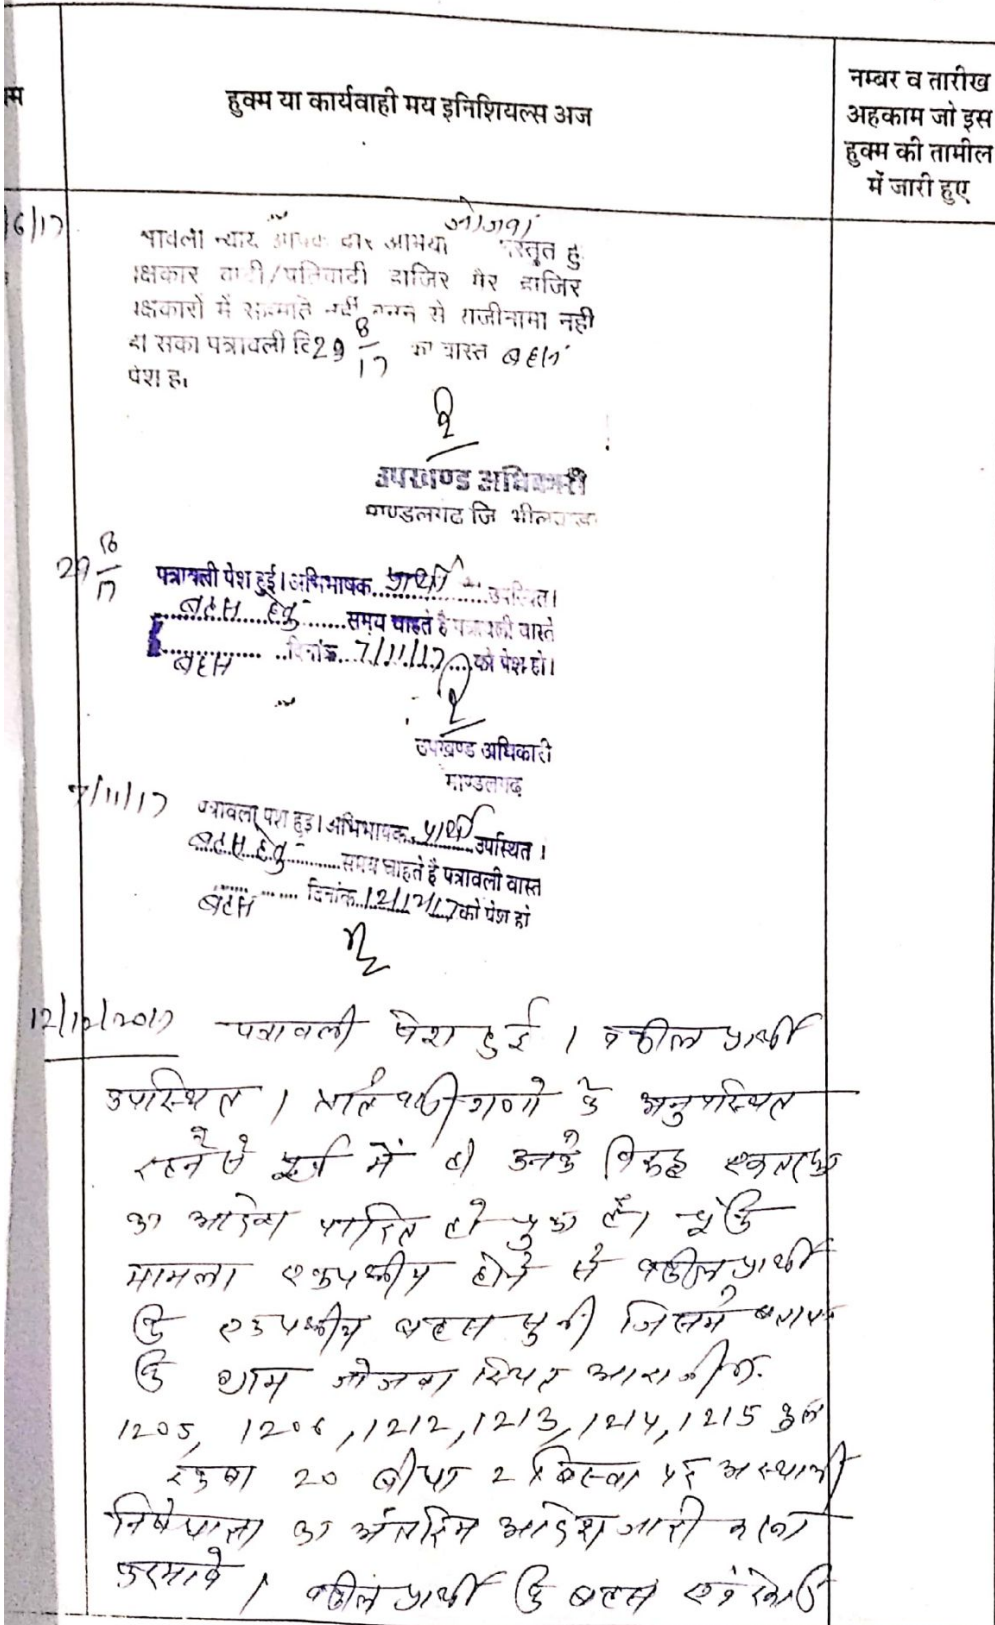 हुक्म या कार्यवाही मय इनिशियल्स अज
नम्बर व तारीख
अहकाम जो इस
हुक्म की तामील
में जारी हुए
6/17
जोजवा
पत्रावली न्याय आपके द्वार प्रस्तुत हु
पक्षकार वादी/प्रतिवादी हाजिर गैर हाजिर
पक्षकारों में सहमति नहीं बनने से राजीनामा नही
हो सका पत्रावली दि 29 8/17 को वास्ते बहस
पेश हो
उपखण्ड अधिकारी
माण्डलगढ जि भीलवाडा
29 8/17
पत्रावली पेश हुई। अभिभाषक प्रार्थी उपस्थित।
बहस हेतु समय चाहते है पत्रावली वास्ते
बहस दिनांक 7/11/17 को पेश हो।
उपखण्ड अधिकारी
माण्डलगढ़
7/11/17
पत्रावली पेश हुई। अभिभाषक प्रार्थी उपस्थित।
बहस हेतु समय चाहते है पत्रावली वास्त
बहस दिनांक 12/12/17 को पेश हो
12/12/2017 पत्रावली पेश हुई। वकील प्रार्थी
उपस्थित। के अनुपस्थित
रहने से पूर्व में ही उनके विरूद्ध एकतरफा
का आदेश पारित हो चुका है। चूंकि
मामला एकपक्षीय होने से वकील प्रार्थी
कि एकपक्षीय बहस सुनी जिसमें बताया
कि ग्राम जोजवा स्थित आराजी नं.
1205, 1206, 1212, 1213, 1214, 1215 कुल
रकबा 20 बीघा 2 बिस्वा पर अस्थायी
निषेधाज्ञा का अंतरिम आदेश जारी
फरमावे। वकील प्रार्थी कि बहस एवं